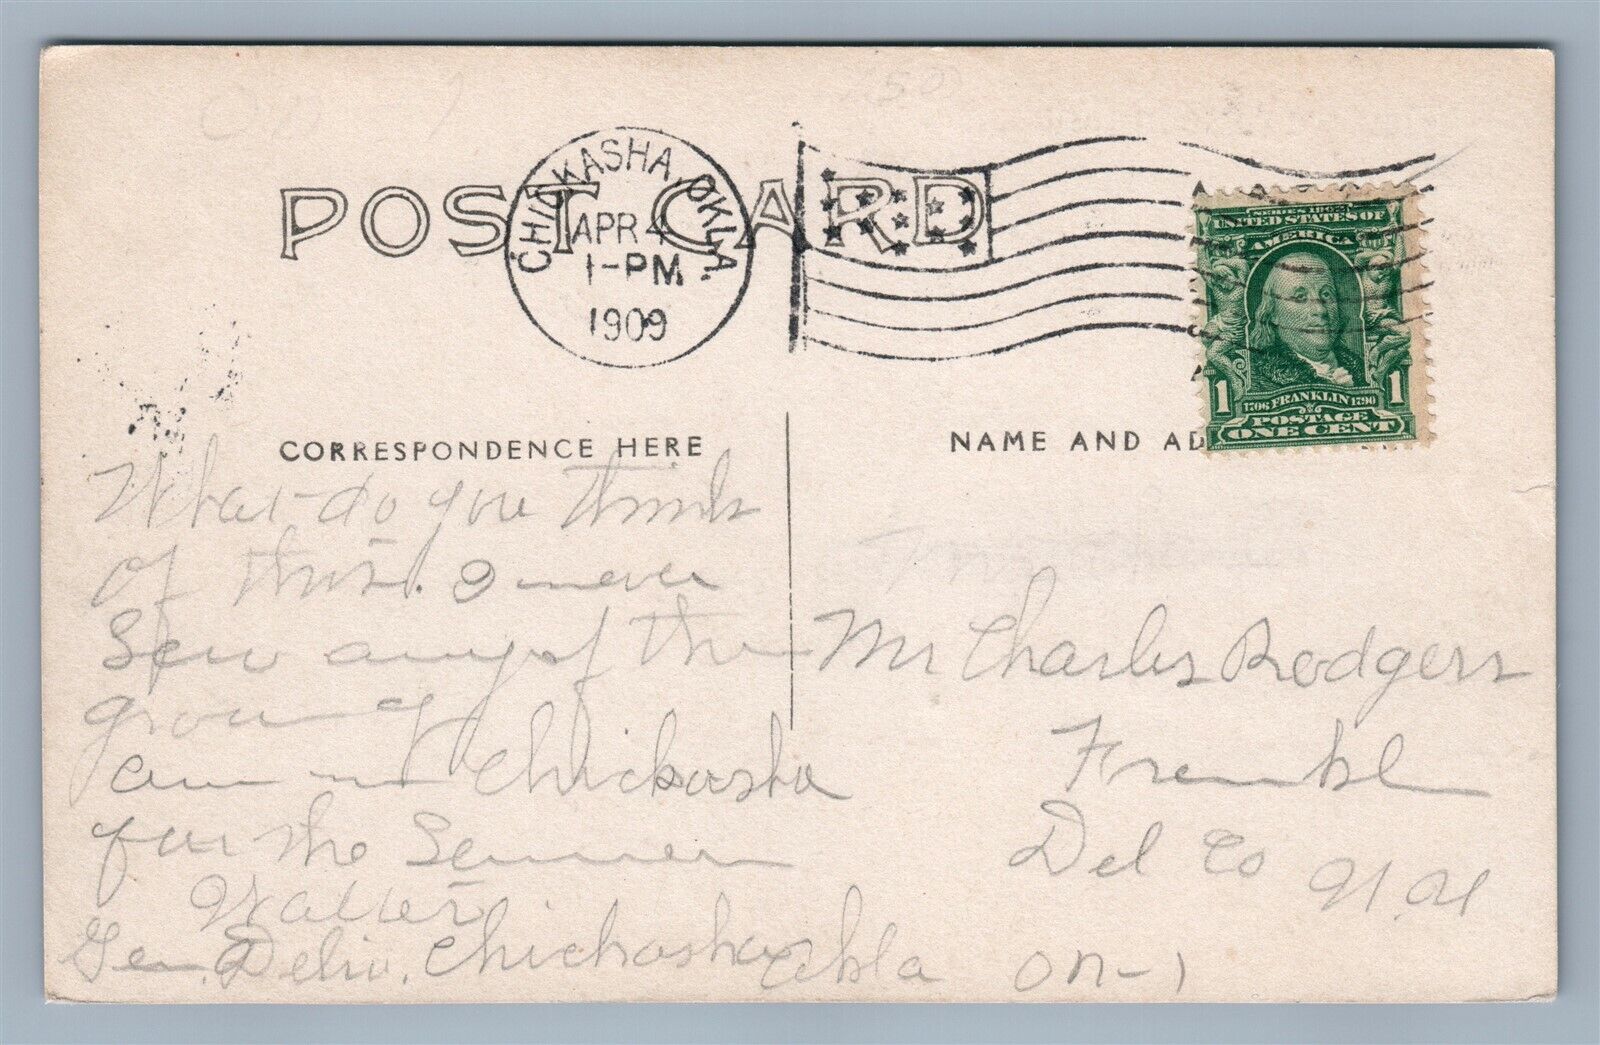 POST CARD
CHICKASHA, OKLA.
APR 4
1-PM
1909
SERIES 1902
UNITED STATES OF
AMERICA
1706 FRANKLIN 1790
POSTAGE
1 ONE CENT 1
CORRESPONDENCE HERE
What do you think
of this. I never
Sew any of the
ground
am in Chickasha
for the Summer
Walter
Gen. Deliv. Chickasha Okla
NAME AND AD
Mr Charles Rodgers
Frankl
Del Co N.Y